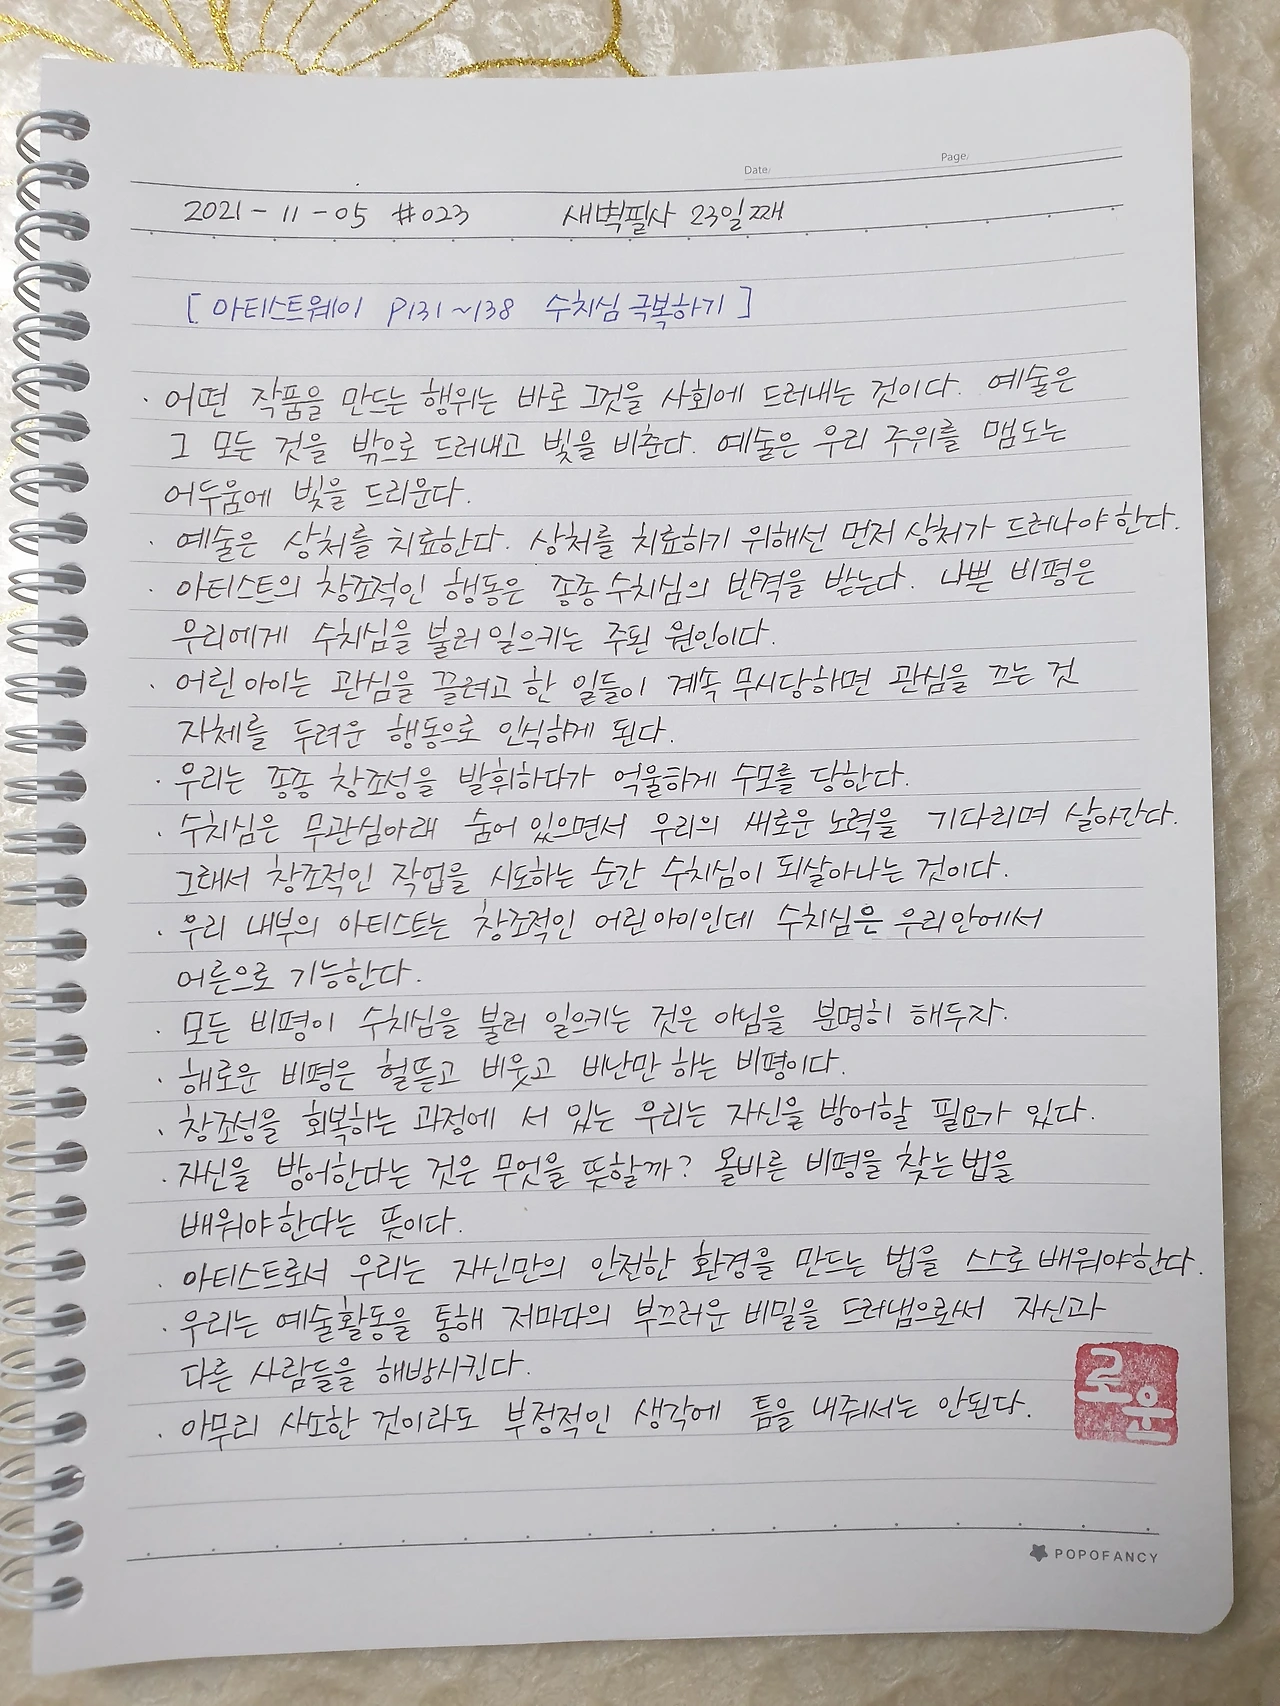 Date/
Page/
2021-11-05 #023 새벽필사 23일째
[ 아티스트웨이 P131~138 수치심 극복하기 ]
· 어떤 작품을 만드는 행위는 바로 그것을 사회에 드러내는 것이다. 예술은
그 모든 것을 밖으로 드러내고 빛을 비춘다. 예술은 우리 주위를 맴도는
어두움에 빛을 드리운다.
· 예술은 상처를 치료한다. 상처를 치료하기 위해선 먼저 상처가 드러나야 한다.
· 아티스트의 창조적인 행동은 종종 수치심의 반격을 받는다. 나쁜 비평은
우리에게 수치심을 불러 일으키는 주된 원인이다.
· 어린 아이는 관심을 끌려고 한 일들이 계속 무시당하면 관심을 끄는 것
자체를 두려운 행동으로 인식하게 된다.
· 우리는 종종 창조성을 발휘하다가 억울하게 수모를 당한다.
· 수치심은 무관심아래 숨어 있으면서 우리의 새로운 노력을 기다리며 살아간다.
그래서 창조적인 작업을 시도하는 순간 수치심이 되살아나는 것이다.
· 우리 내부의 아티스트는 창조적인 어린아이인데 수치심은 우리안에서
어른으로 기능한다.
· 모든 비평이 수치심을 불러 일으키는 것은 아님을 분명히 해두자.
· 해로운 비평은 헐뜯고 비웃고 비난만 하는 비평이다.
· 창조성을 회복하는 과정에 서 있는 우리는 자신을 방어할 필요가 있다.
· 자신을 방어한다는 것은 무엇을 뜻할까? 올바른 비평을 찾는 법을
배워야 한다는 뜻이다.
· 아티스트로서 우리는 자신만의 안전한 환경을 만드는 법을 스스로 배워야한다.
· 우리는 예술활동을 통해 저마다의 부끄러운 비밀을 드러냄으로서 자신과
다른 사람들을 해방시킨다.
· 아무리 사소한 것이라도 부정적인 생각에 틈을 내줘서는 안된다.
로운
POPOFANCY